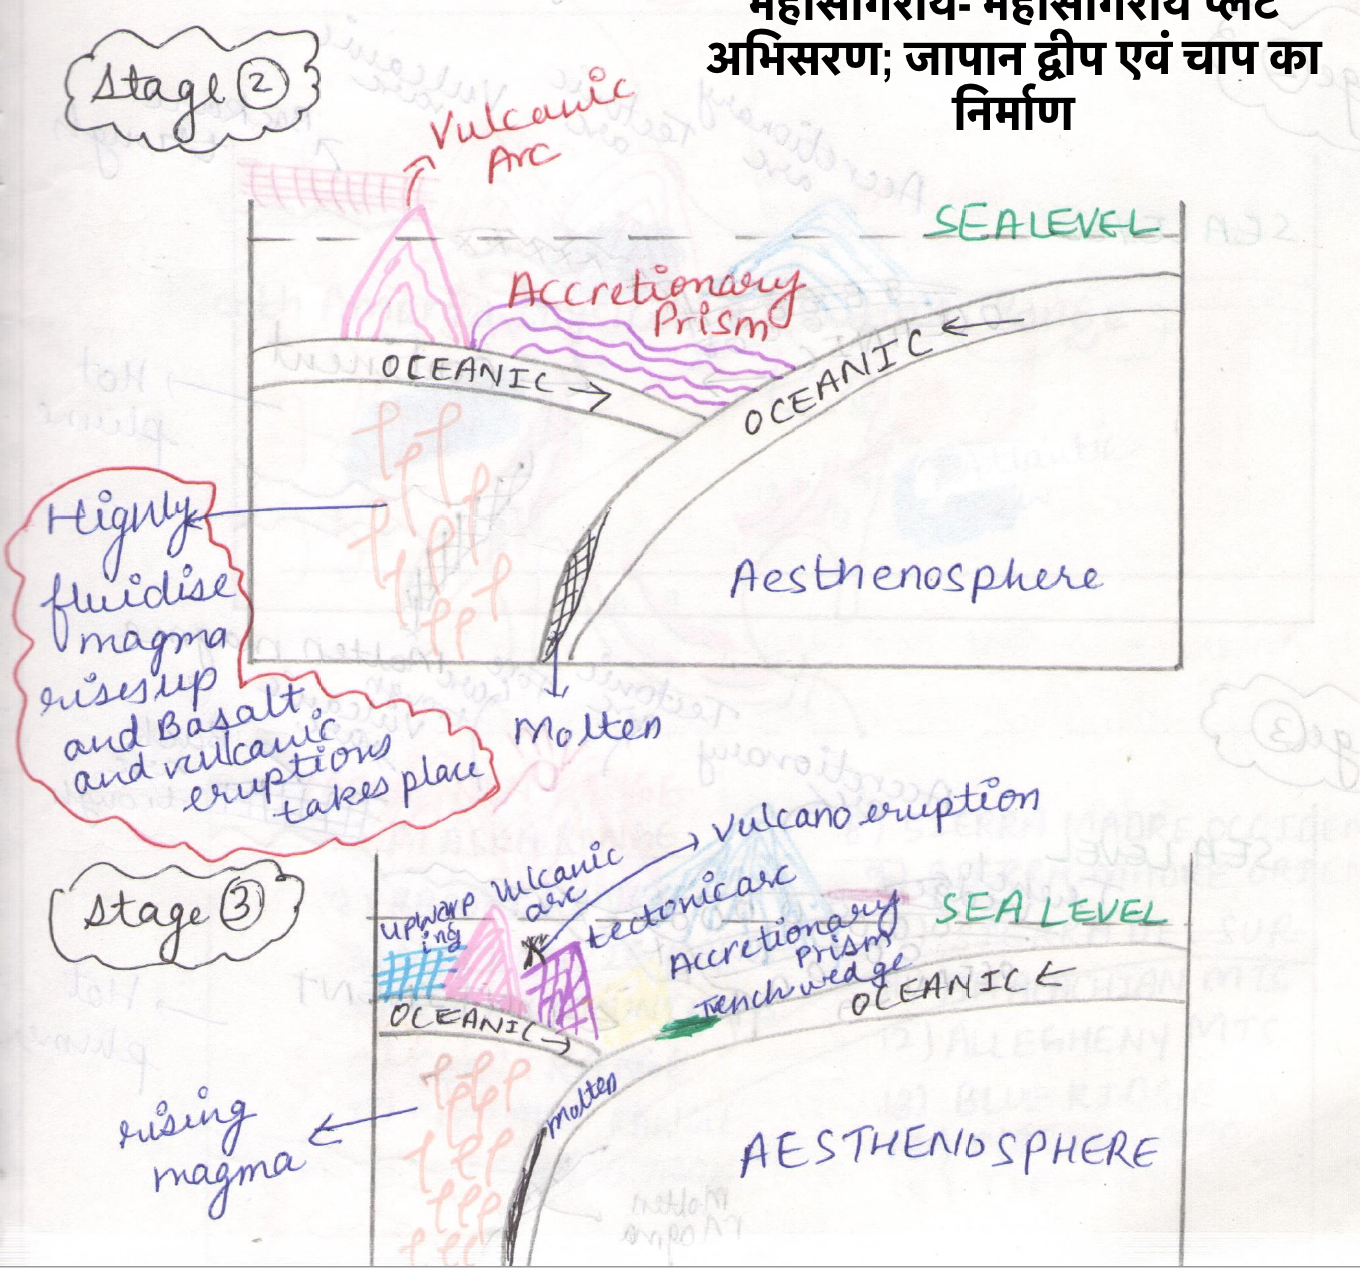 महासागरीय- महासागरीय प्लेट
अभिसरण; जापान द्वीप एवं चाप का
निर्माण
Stage 2
Vulcanic
Arc
SEALEVEL
Accretionary
Prism
OCEANIC
OCEANIC
Highly
fluidise
magma
rises up
and Basalt
and vulcanic
eruptions
takes place
Aesthenosphere
Molten
Stage 3
vulcano eruption
upwarp
ing
vulcanic
arc
tectonicarc
Accretionary
prism
Tench wedge
SEA LEVEL
OCEANIC
OCEANIC
molten
rising
magma
AESTHENOSPHERE